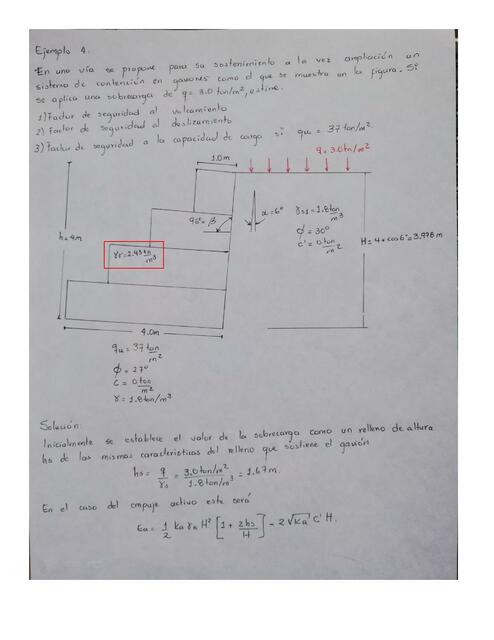 Ejemplo 4.
En una vía se propone para su sostenimiento a la vez ampliación un
sistema de contención en gaviones como el que se muestra en la figura. Si
se aplica una sobrecarga de q= 3.0 ton/m², estime.
1) Factor de seguridad al volcamiento
2) Factor de seguridad al deslizamiento
3) Factor de seguridad a la capacidad de carga si qu = 37 ton/m².
q = 3.0 tn/m²
1.0m
96° = β
α=6°
γs1 = 1.8 ton/m³
ϕ = 30°
c' = 0 ton/m²
h=4m
γr= 2.43 tn/m³
H = 4 * cos 6° = 3.978 m
4.0m
qu = 37 ton/m²
ϕ = 27°
c = 0 ton/m²
γ = 1.8 ton/m³
Solución:
Inicialmente se establece el valor de la sobrecarga como un relleno de altura
hs de las mismas características del relleno que sostiene el gavión
hs = q/γs = 3.0 ton/m² / 1.8 ton/m³ = 1.67 m.
En el caso del empuje activo este será
Ea = 1/2 Ka γs H² [1 + 2hs/H] - 2√Ka C' H.